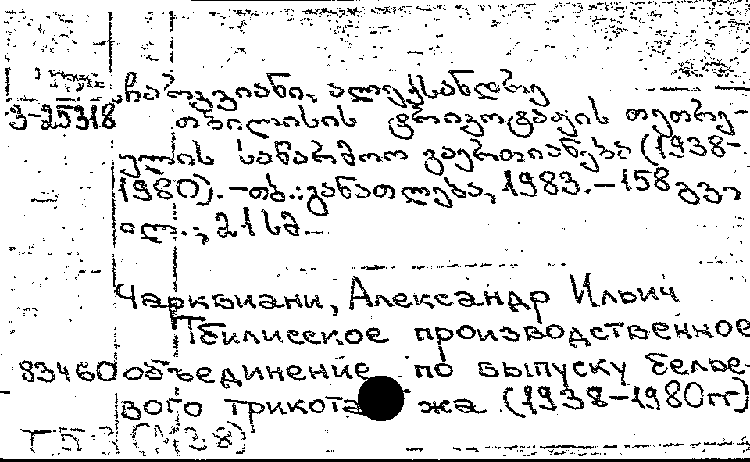 ჩარკვიანი, ალექსანდრე
3-25318 თბილისის ტრიკოტაჟის თეთრე-
ულის საწარმოო გაერთიანება (1938-
1980).-თბ.:განათლება, 1983.-158გვ.,
ილ.; 21 სმ.
Чарквиани, Александр Ильич
Тбилисское производственное
83460 объединение по выпуску белье-
вого трикотажа (1938-1980гг)